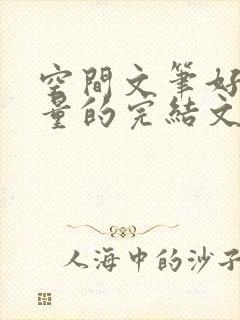 空間文筆好
量的完結文
人海中的沙子